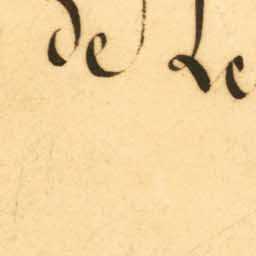 de Le